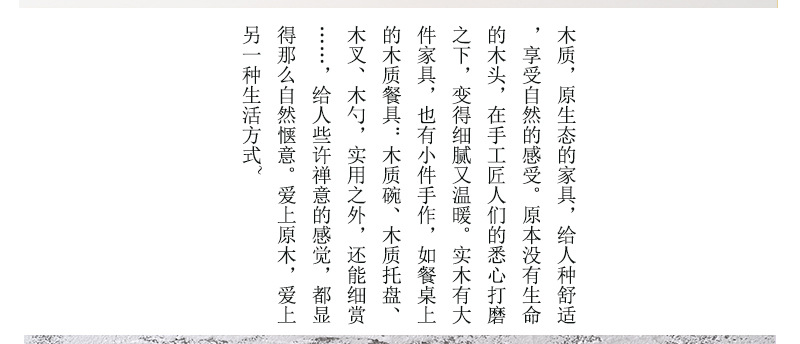 木质，原生态的家具，给人种舒适
，享受自然的感受。原本没有生命
的木头，在手工匠人们的悉心打磨
之下，变得细腻又温暖。实木有大
件家具，也有小件手作，如餐桌上
的木质餐具：木质碗、木质托盘、
木叉、木勺，实用之外，还能细赏
……，给人些许禅意的感觉，都显
得那么自然惬意。爱上原木，爱上
另一种生活方式~